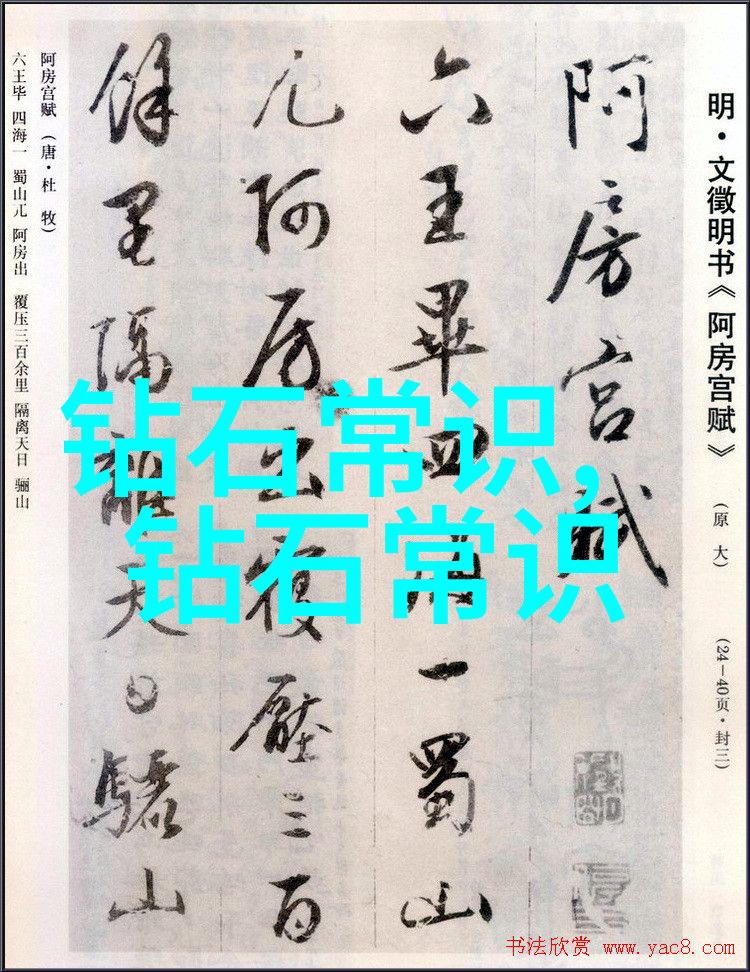 明·文徵明书《阿房宫赋》 (原 大) (24—40页·封三)
阿房宫賦
六王畢四海一蜀山
兀阿房出覆壓三百
餘里隔離天日驪山
阿房宫赋 (唐·杜 牧)
六王毕 四海一 蜀山兀 阿房出 覆压三百余里 隔离天日 骊山
钻石常识,
钻石常识
书法欣赏 www.yac8.com